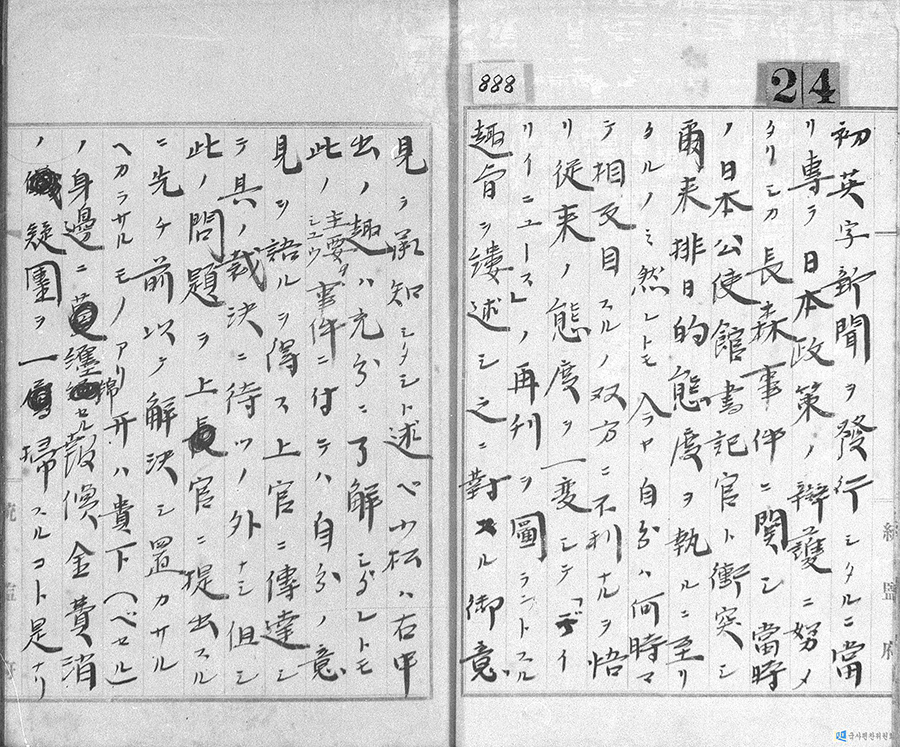 24
888
初英字新聞ヲ發行シタルニ當
リ専ラ日本政策ノ辯護ニ努メ
タリシカ長森事件ニ関シ當時
ノ日本公使館書記官ト衝突シ
爾来排日的態度ヲ執ルニ至リ
タルノミ然レトモ今ヤ自分ハ何時マ
テ相反目スルノ双方ニ不利ナルヲ悟
リ従来ノ態度ヲ一変シテ「デイ
リイニュースレ」ノ再刊ヲ圖ラントスル
趣旨ヲ縷述シ之ニ對スル御意
見ヲ承知シタシト述ベ小松ハ右申
出ノ趣ハ充分ニ了解シタレトモ
此ノ主要ナ事件ニ付テハ自分ノ意
見ヲ語ルヲ得ス上官ニ傳達シ
テ其ノ裁決ニ待ツノ外ナシ但シ
此ノ問題ヲ上官ニ提出スル
ニ先チ前以テ解決シ置カサル
ヘカラサルモノアリ開ハ貴下(ベセル)
ノ身邊ニ纏綿セル報償金費消
ノ疑團ヲ一掃スルコト是ナリ
統監府
統監府
국사편찬위원회